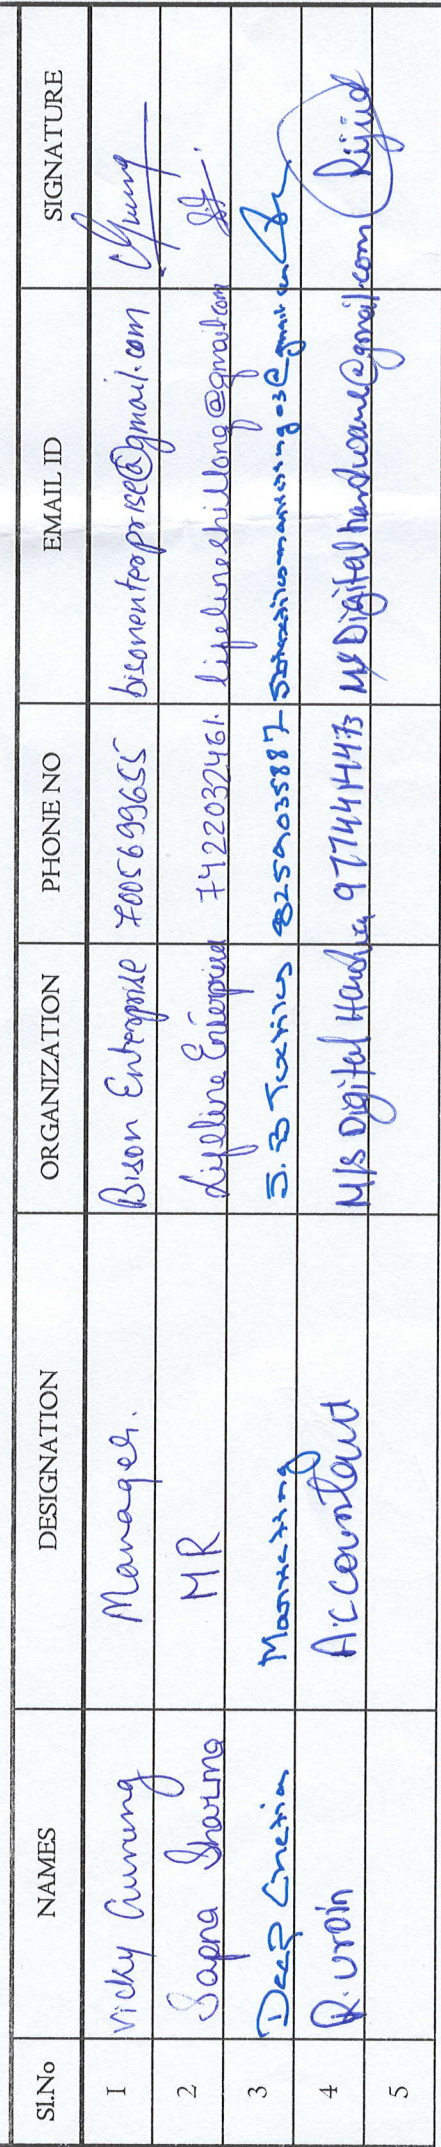 Sl.No NAMES DESIGNATION ORGANIZATION PHONE NO EMAIL ID SIGNATURE
1 Vicky Gurung Manager. Bison Enterprise 7005699655 bisonenterprise@gmail.com
2 Sapna Sharma MR Lifeline Enterprise 7422032461. lifelineshillong@gmail.com
3 Deep Marketing S.B 8259035887
4 R. Accountant M/S Digital 9774414473 M/s Digital hardware@gmail.com
5